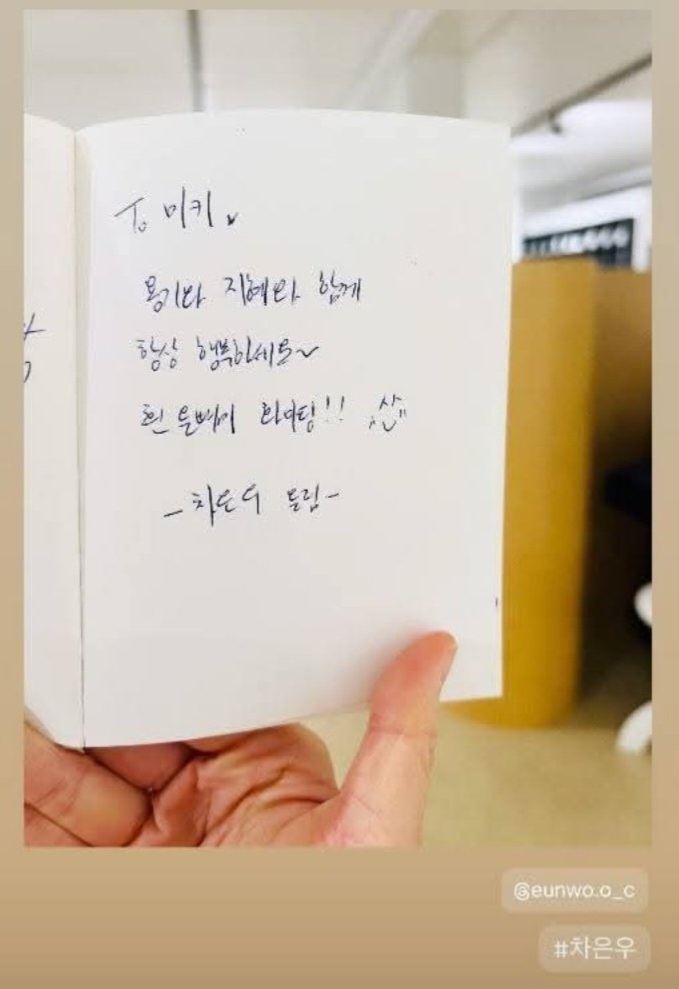 To. 미키
용기와 지혜와 함께
항상 행복하세요~
흰 올빼미 화이팅!!
-차은우 드림-
@eunwo.o_c
#차은우